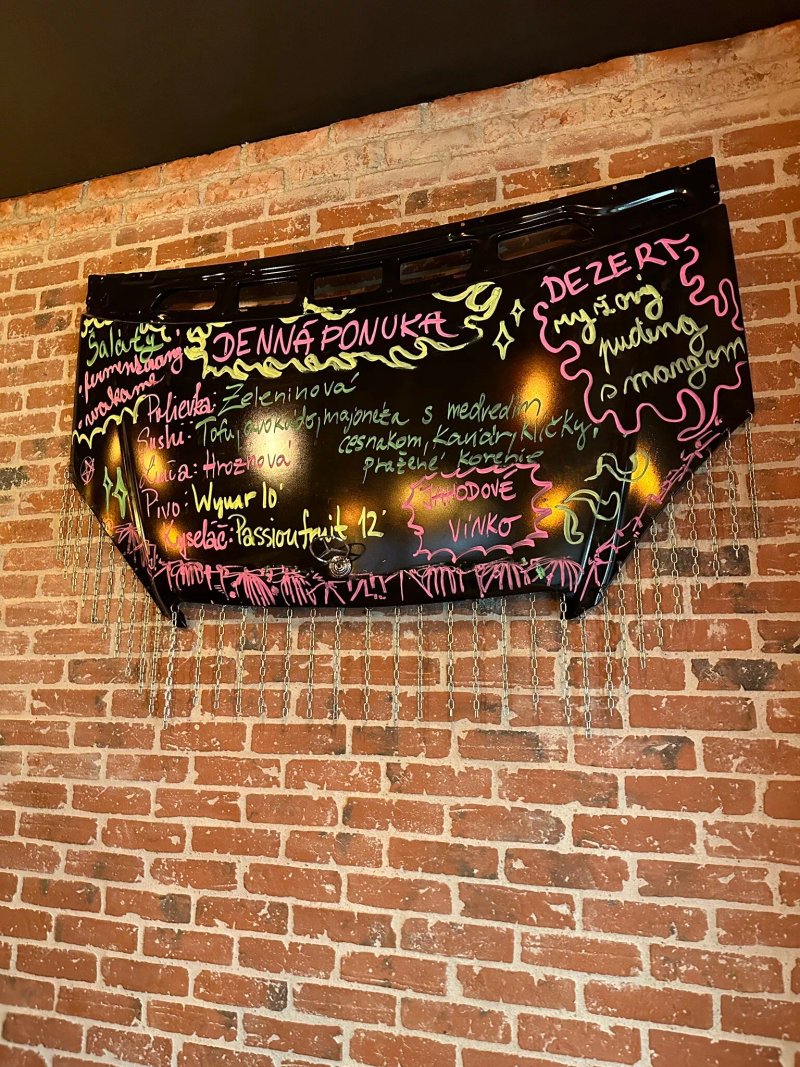 Šaláty
• fermentovaný
• wakame
DENNÁ PONUKA
Polievka: Zeleninová
Sushi: Tofu, avokádo, majonéza s medvedím
cesnakom, Kaviár, Klíčky,
pražené korenie
Hroznová
Pivo: Wywar 10°
Kyseláč: Passionfruit 12°
JAHODOVÉ
VÍNKO
DEZERT
ryžový
puding
s mangom